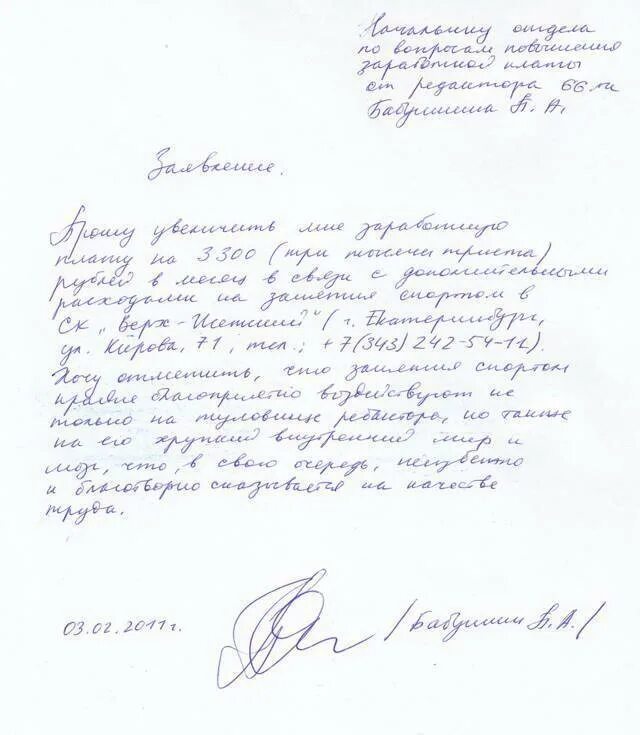 Начальнику отдела
по вопросам повышения
заработной платы
от редактора 66.ru
Бабушкина П. А.
Заявление.
Прошу увеличить мне заработную
плату на 3300 (три тысячи триста)
рублей в месяц в связи с дополнительными
расходами на занятия спортом в
СК „Верх-Исетский" (г. Екатеринбург,
ул. Кирова, 71, тел.: +7(343) 242-54-12).
Хочу отметить, что занятия спортом
крайне благоприятно воздействуют не
только на туловище редактора, но также
на его хрупкий внутренний мир и
мозг, что, в свою очередь, неизбежно
и благотворно сказывается на качестве
труда.
03.02.2011 г.
/Бабушкин П. А./